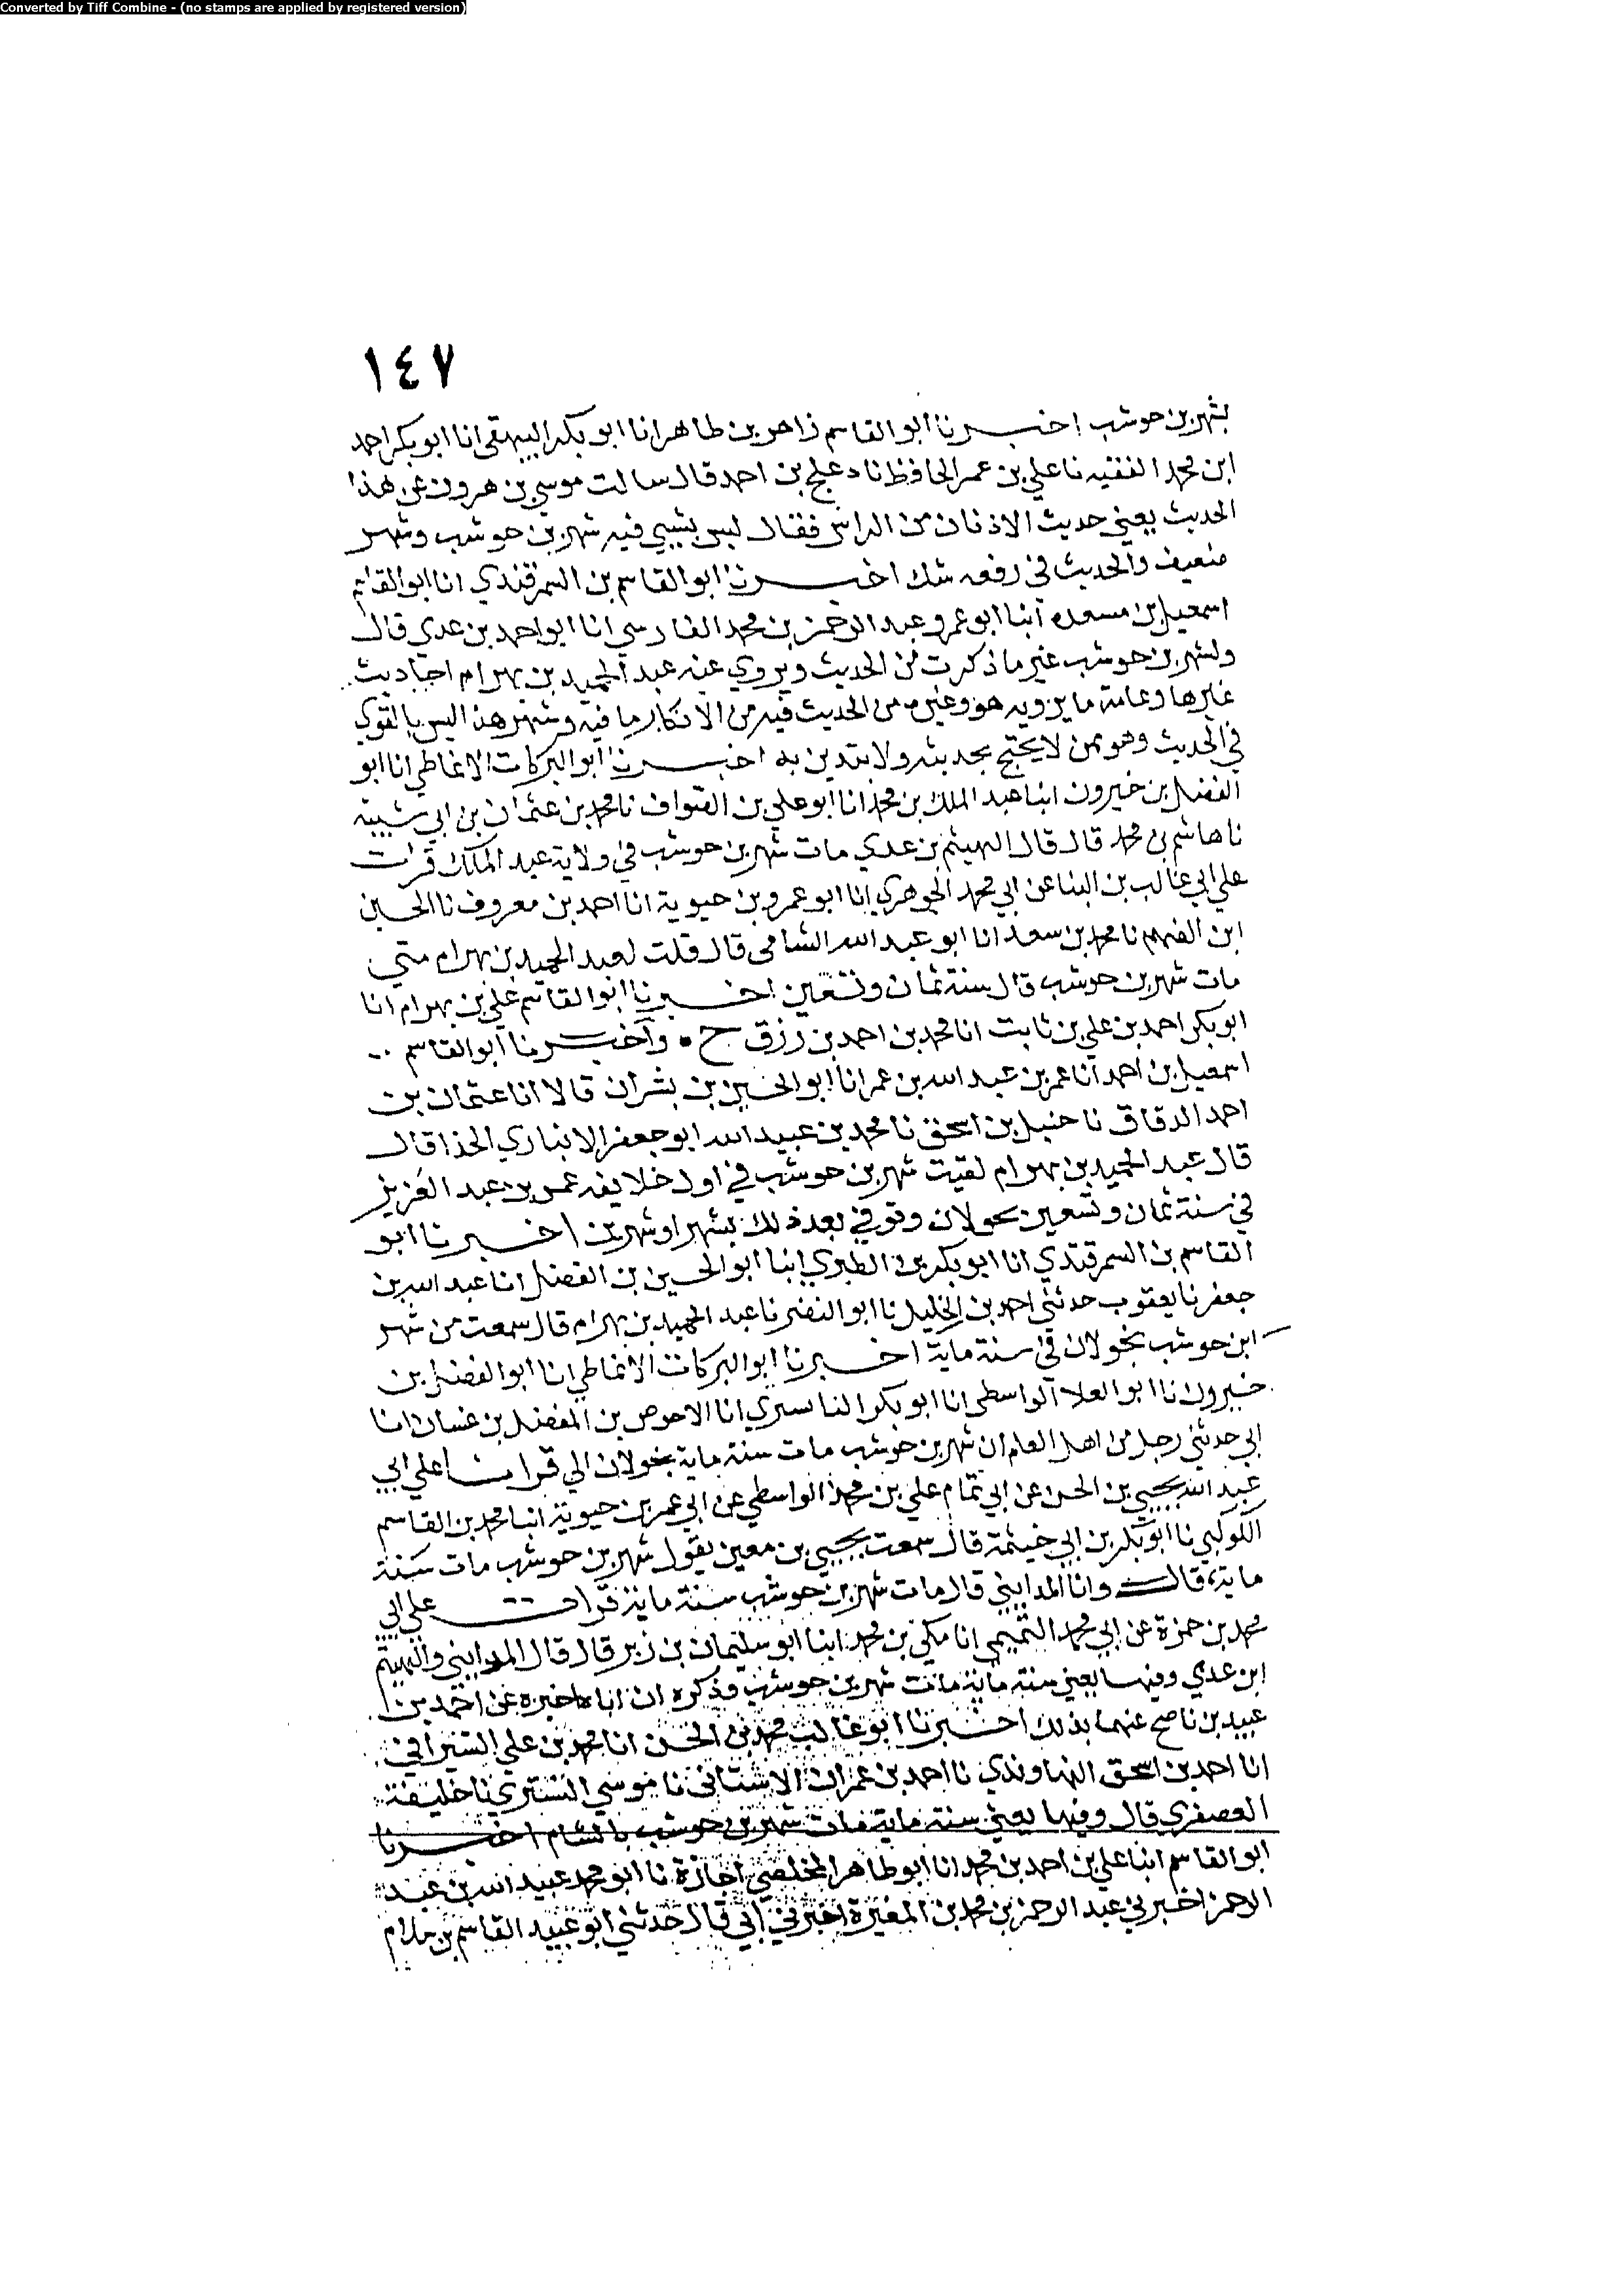 Converted by Tiff Combine - (no stamps are applied by registered version)
١٤٧
بشهر بن حوشب اخبرنا ابو القاسم زاهر بن طاهر انا ابو بكر البيهقي انا ابو بكر احمد
ابن محمد الفقيه نا علي بن عمر الحافظ نا دعلج بن احمد قال سالت موسي بن هرون عن هذا
الحديث يعني حديث الاذنان من الراس فقال ليس بشيي فيه شهر بن حوشب وشهر
ضعيف والحديث في رفعه شك اخبرنا ابو القاسم بن السمرقندي انا ابو القاسم
اسمعيل بن مسعده انبا ابو عمرو عبد الرحمن بن محمد الفارسي انا ابو احمد بن عدي قال
ولشهر بن حوشب غير ما ذكرت من الحديث ويروي عنه عبد الحميد بن بهرام احاديث
غيرها وعامة ما يرويه هو وغيره من الحديث فيه من الانكار ما فيه وشهر هذا ليس بالقوي
في الحديث وهو ممن لا يحتج بحديثه ولا يتدين به اخبرنا ابو البركات الانماطي انا ابو
الفضل بن خيرون انبا عبد الملك بن محمد انا ابو علي بن الصواف نا محمد بن عثمان بن ابي شيبة
نا هاشم بن محمد قال قال الهيثم بن عدي مات شهر بن حوشب في ولاية عبد الملك قرات
علي ابي غالب بن البنا عن ابي محمد الجوهري انا ابو عمرو بن حيوية انا احمد بن معروف نا الحسين
ابن الفهم نا محمد بن سعد انا ابو عبد الله الشامي قال قلت لعبد الحميد بن بهرام متي
مات شهر بن حوشب قال سنة ثمان وتسعين اخبرنا ابو القاسم علي بن بهرام انا
ابو بكر احمد بن علي بن ثابت انا محمد بن احمد بن رزق ح واخبرنا ابو القاسم
اسمعيل بن احمد انا عمر بن عبيد الله بن عمر انا ابو الحسين بن بشران قالا انا عثمان بن
احمد الدقاق نا حنبل بن اسحق نا محمد بن عبيد الله ابو جعفر الانباري الحذا قال
قال عبد الحميد بن بهرام لقيت شهر بن حوشب في اول خلافه عمر بن عبد العزيز
في سنة ثمان وتسعين بحولان وتوفي بعد ذلك بشهر او شهرين اخبرنا ابو
القاسم بن السمرقندي انا ابو بكر بن الطبري انبا ابو الحسين بن الفضل انا عبد الله بن
جعفر نا يعقوب حدثني احمد بن الخليل نا ابو النضر نا عبد الحميد بن بهرام قال سمعت من شهر
ابن حوشب بخولان في سنة ماية اخبرنا ابو البركات الانماطي انا ابو الفضل بن
خيرون نا ابو العلا الواسطي انا ابو بكر البابسيري انا الاحوص بن المفضل بن غسان انا
ابي حدثني رجل من اهل العلم ان شهر بن حوشب مات سنة ماية بخولان الي قرات علي ابي
عبد الله يحيي بن الحسن عن ابي تمام علي بن محمد الواسطي عن ابي عمر بن حيوية انبا محمد بن القاسم
الكوكبي نا ابو بكر بن ابي خيثمة قال سمعت يحيي بن معين يقول شهر بن حوشب مات سنة
ماية قال وانا المدايني قال مات شهر بن حوشب سنة ماية قرات علي ابي
محمد بن حمزة عن ابي محمد التميمي انا مكي بن محمد انبا ابو سليمان بن زبر قال قال المدايني والهيثم
ابن عدي وفيها يعني سنة ماية مات شهر بن حوشب وذكره ان اباه اخبره عن احمد بن
عبيد بن ناصح عنهما بذلك اخبرنا ابو غالب محمد بن الحسن انا محمد بن علي السيرافي
انا احمد بن اسحق النهاوندي نا احمد بن عمران الاشناني نا موسي التستري نا خليفة
العصفري قال وفيها يعني سنة ماية مات شهر بن حوشب بالشام اخبرنا
ابو القاسم انبا علي بن احمد بن محمد انا ابو طاهر المخلصي اجازة نا ابو محمد عبيد الله بن عبد
الرحمن اخبرني عبد الرحمن بن محمد بن المغيرة اخبرني ابي قال حدثني ابو عبيد القاسم بن سلام